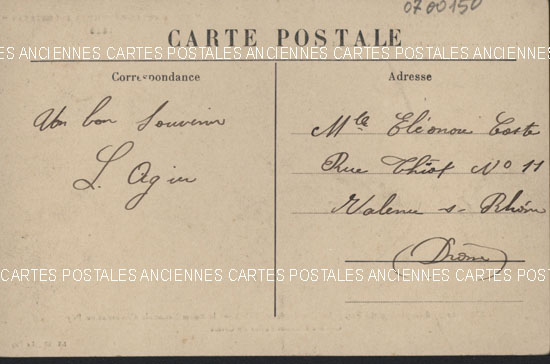 0700150
CARTE POSTALE
CARTES POSTALES ANCIENNES CARTES POSTALES ANCIENNES CARTES POSTALES ANCIENNES
Correspondance
Un bon Souvenir
L. Agier
Adresse
Mlle Eléonore Coste
Rue Thiot No 11
Valence s- Rhône
(Drôme)
CARTES POSTALES ANCIENNES CARTES POSTALES ANCIENNES CARTES POSTALES ANCIENNES